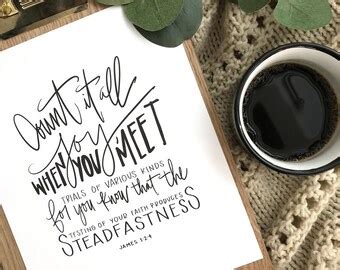 Count it all
joy
WHEN YOU MEET
TRIALS OF VARIOUS KINDS
for you know that the
TESTING OF YOUR FAITH PRODUCES
STEADFASTNESS
JAMES 1:2-4